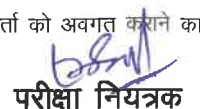 र्ता को अवगत कराने का
परीक्षा नियंत्रक